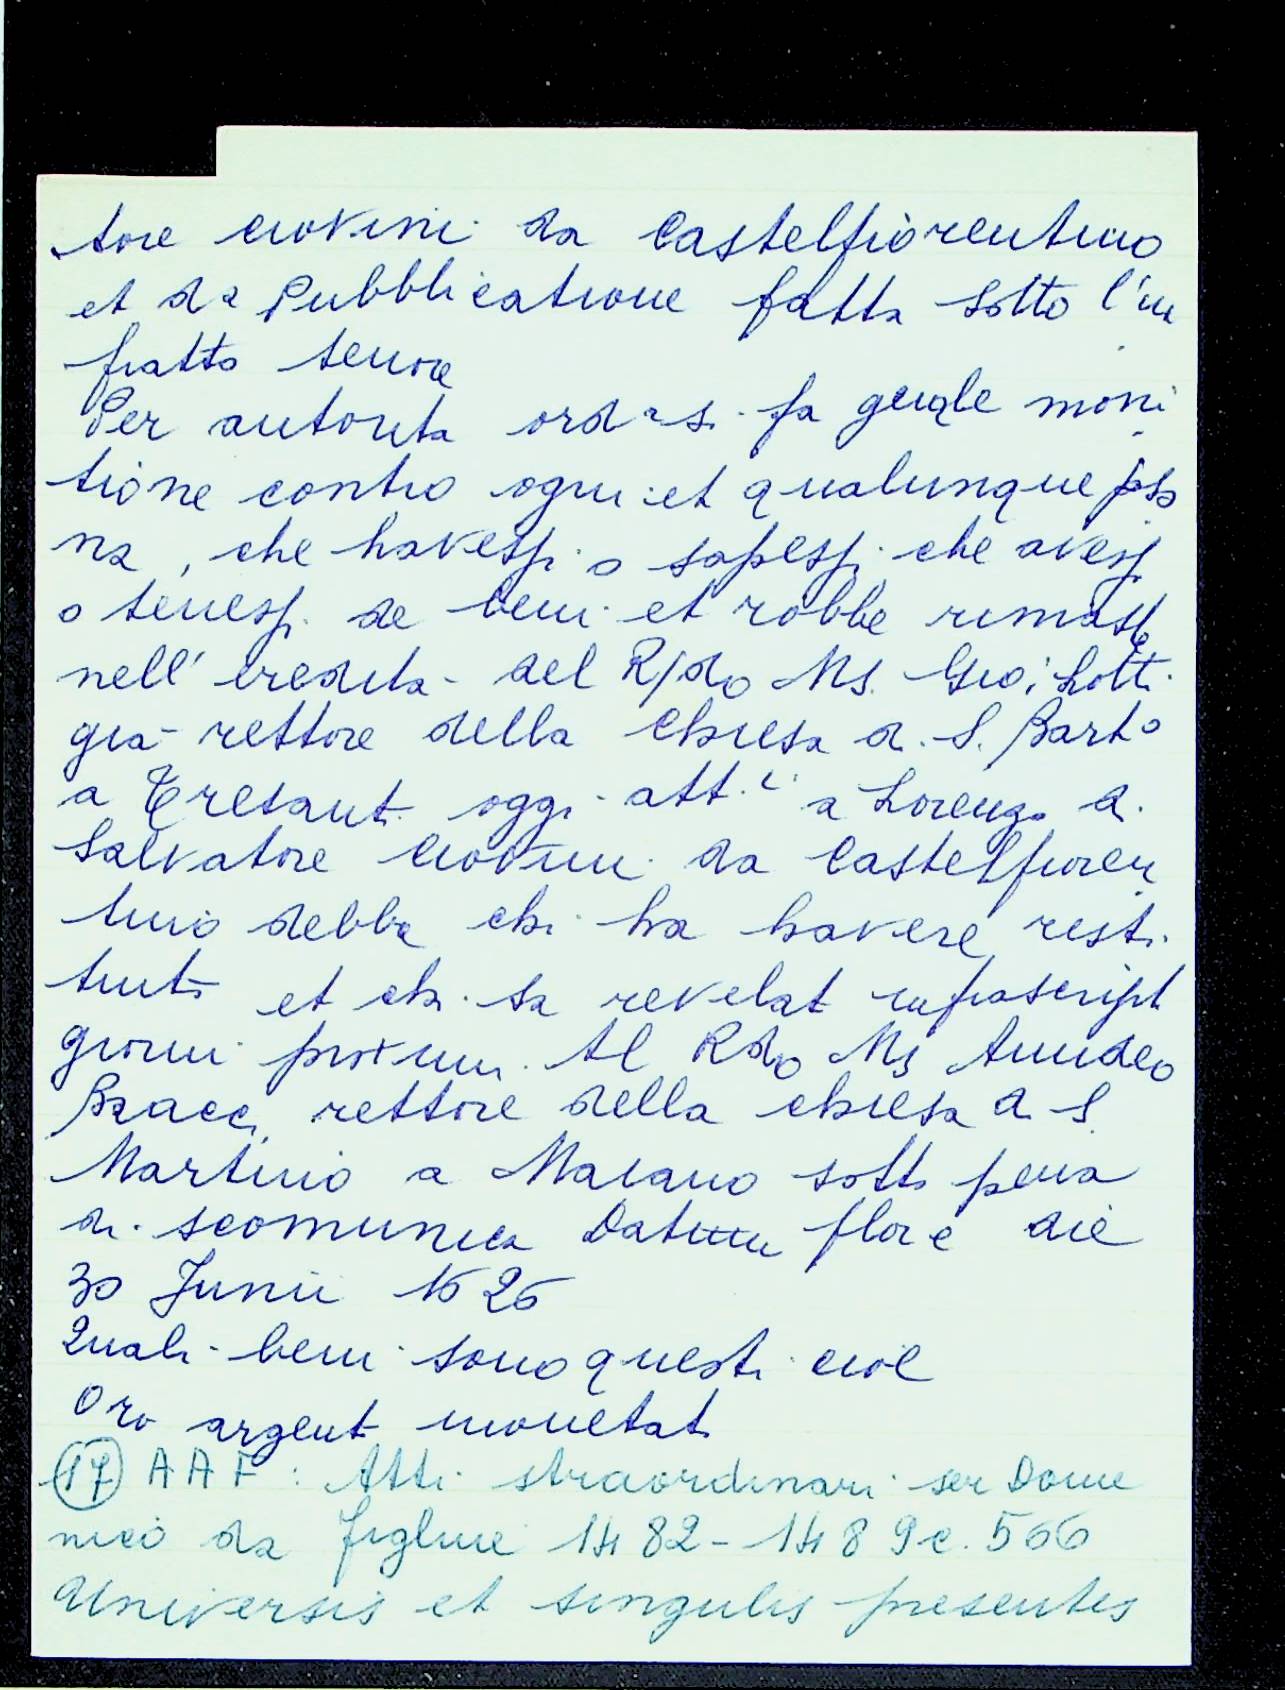 tore Ciovini da Castelfiorentino
et da Pubblicatione fatta sotto l'in
fratto tenore
Per autorità ord si fa genle moni
tione contro ogni et qualunque psо
na, che havessi o sapessi che avessi
o tenessi de beni et robbe rimaste
nell' eredità del R/do Ms. Gio: Lotti
gia rettore della chiesa di S. Barto
a Tresanti oggi att. a Lorenzo di
Salvatore Ciovini da Castelfioren
tino debba chi ha havere resti
tuito et chi sa revelat infrascript
giorni proxim. Al Rdo Ms Amideo
Bracci rettore della chiesa di S.
Martino a Maiano sotto pena
di scomunica Datum flore die
30 Junii 1626
Quali beni sono questi cioè
Oro argent monetat
(17) AAF: Atti straordinari ser Dome
nico da Figline 1482-1489 c. 506
Universis et singulis presentes